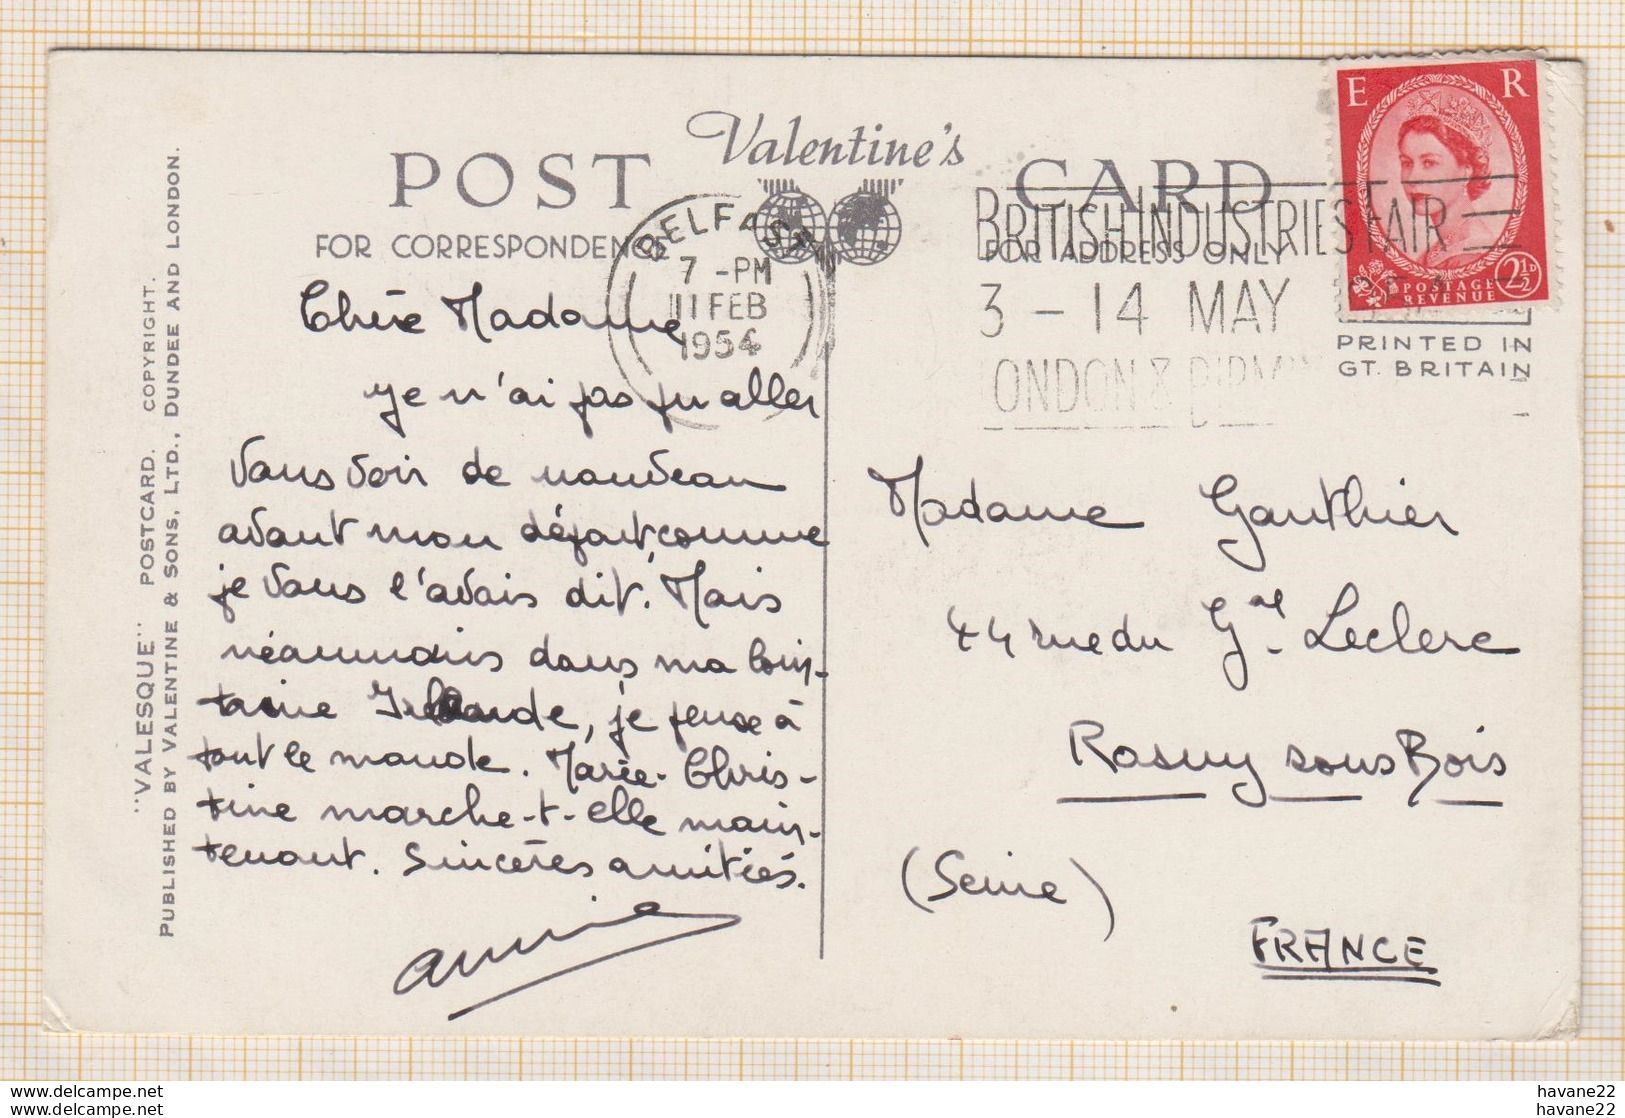 POST Valentine's CARD
FOR CORRESPONDENCE
FOR ADDRESS ONLY
BELFAST
7 - PM
11 FEB
1954
BRITISH INDUSTRIES FAIR
3 - 14 MAY
LONDON &
E R
POSTAGE
REVENUE
2½D
PRINTED IN
GT. BRITAIN
"VALESQUE" POSTCARD. COPYRIGHT.
PUBLISHED BY VALENTINE & SONS, LTD., DUNDEE AND LONDON.
Chère Madame
je n'ai pas pu aller
vous voir de nouveau
avant mon départ, comme
je vous l'avais dit. Mais
néanmoins dans ma loin-
taine Irlande, je pense à
tout le monde. Marie-Chris-
tine marche-t-elle main-
tenant. Sincères amitiés.
annie
Madame Gauthier
44 rue du Gal Leclerc
Rosny sous Bois
(Seine)
FRANCE
havane22
havane22
havane22
havane22